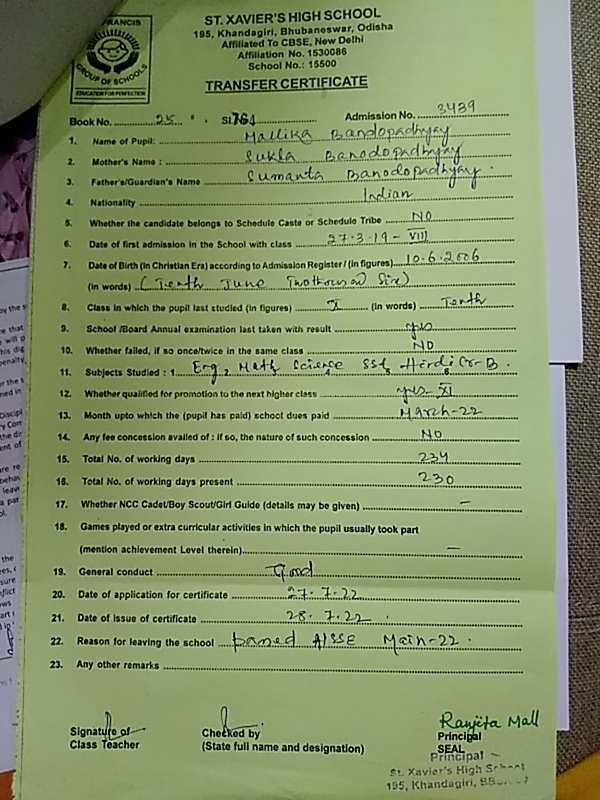 FRANCIS
GROUP OF SCHOOLS
EDUCATION FOR PERFECTION
ST. XAVIER'S HIGH SCHOOL
195, Khandagiri, Bhubaneswar, Odisha
Affiliated To CBSE, New Delhi
Affiliation No. 1530086
School No.: 15500
TRANSFER CERTIFICATE
Book No. 25 Sl. 761 Admission No. 3439
1. Name of Pupil: Mallika Bandopadhyay
2. Mother's Name : Sukla Banodopadhyay
3. Father's/Guardian's Name Sumanta Banodopadhyay
4. Nationality Indian
5. Whether the candidate belongs to Schedule Caste or Schedule Tribe NO
6. Date of first admission in the School with class 27-3-19 - VIII
7. Date of Birth (in Christian Era) according to Admission Register / (in figures) 10.6.2006
(in words) (Tenth June Twothousand Six)
8. Class in which the pupil last studied (in figures) X (in words) Tenth
9. School /Board Annual examination last taken with result yes
10. Whether failed, if so once/twice in the same class NO
11. Subjects Studied : 1 Eng 2. Math Science SSt Hindi Cr-B.
12. Whether qualified for promotion to the next higher class yes- XI
13. Month upto which the (pupil has paid) school dues paid March-22
14. Any fee concession availed of : if so, the nature of such concession NO
15. Total No. of working days 234
16. Total No. of working days present 230
17. Whether NCC Cadet/Boy Scout/Girl Guide (details may be given) –
18. Games played or extra curricular activities in which the pupil usually took part
(mention achievement Level therein) –
19. General conduct Good
20. Date of application for certificate 27.7.22
21. Date of issue of certificate 28.7.22
22. Reason for leaving the school passed AISSE Main-22.
23. Any other remarks
Ranjita Mall
Signature of Checked by Principal
Class Teacher (State full name and designation) SEAL
Principal
St. Xavier's High School
195, Khandagiri,